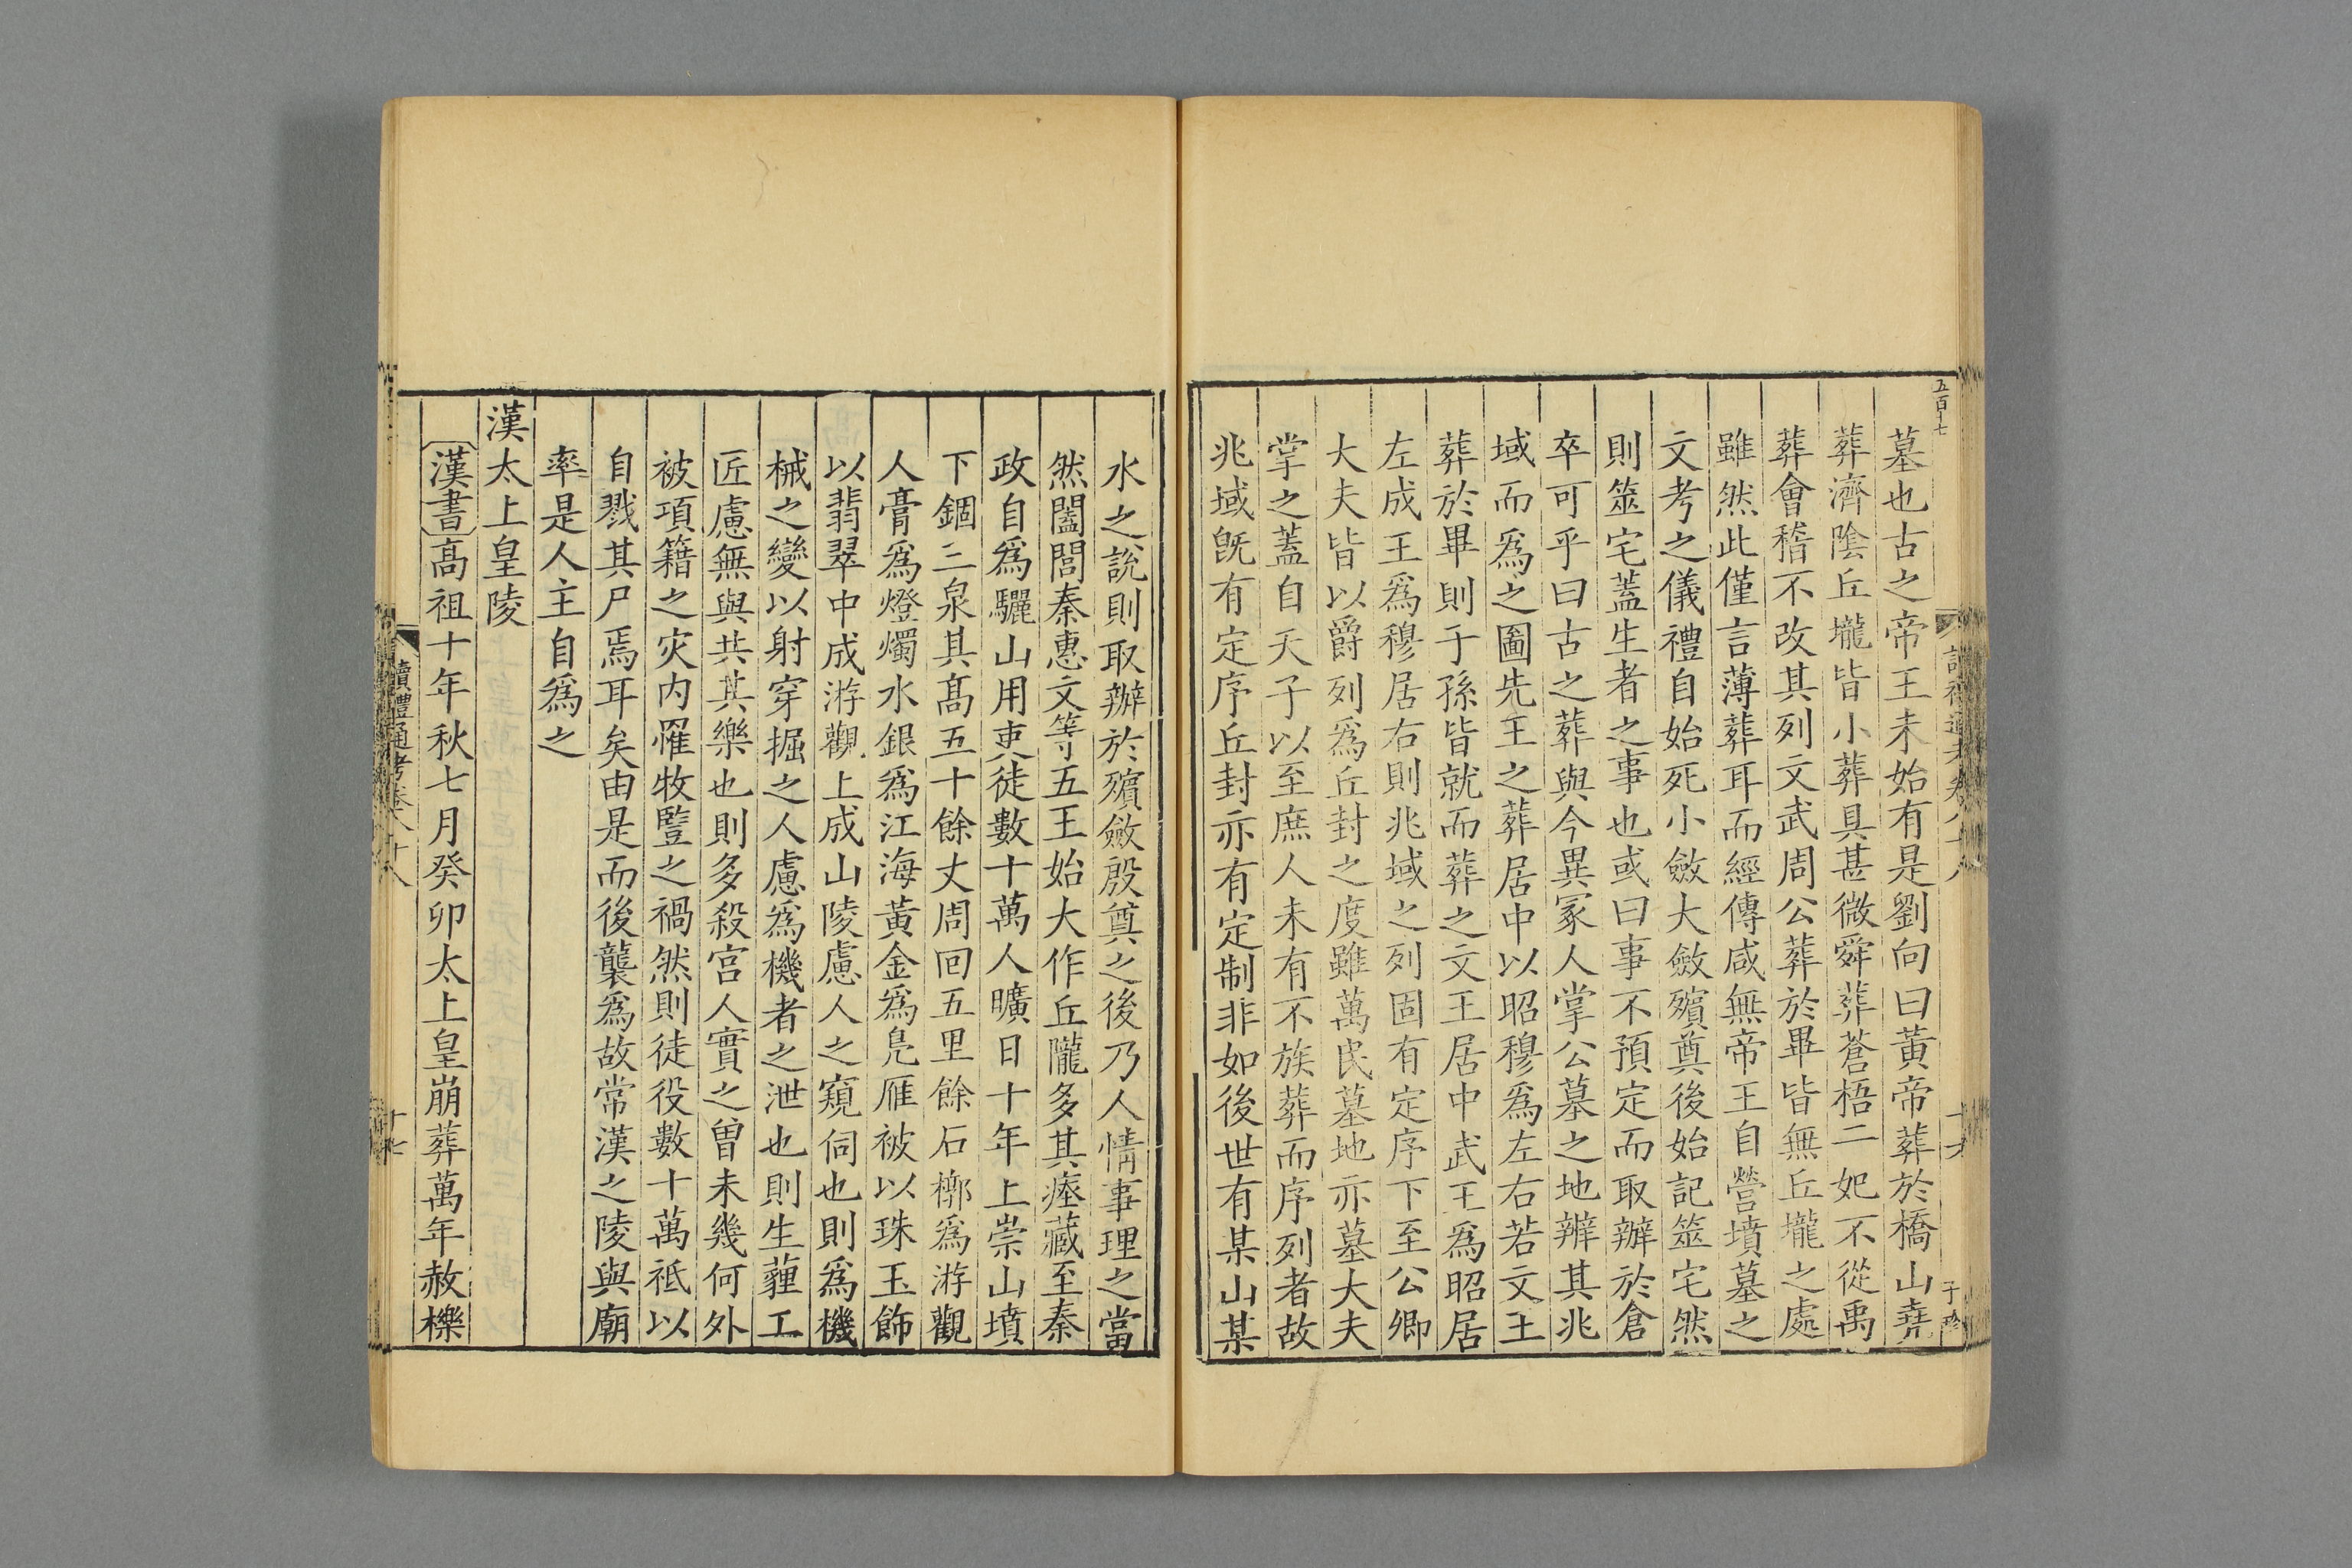 五百十七
墓也古之帝王未始有是劉向曰黃帝葬於橋山堯
葬濟陰丘壠皆小葬具甚微舜葬蒼梧二妃不從禹
葬會稽不改其列文武周公葬於畢皆無丘壠之處
雖然此僅言薄葬耳而經傳咸無帝王自營墳墓之
文考之儀禮自始死小斂大斂殯奠後始記筮宅然
則筮宅蓋生者之事也或曰事不預定而取辦於倉
卒可乎曰古之葬與今異冢人掌公墓之地辨其兆
域而爲之圖先王之葬居中以昭穆爲左右若文王
葬於畢則于孫皆就而葬之文王居中武王爲昭居
左成王爲穆居右則兆域之列固有定序下至公卿
大夫皆以爵列爲丘封之度雖萬民墓地亦墓大夫
掌之蓋自天子以至庶人未有不族葬而序列者故
兆域旣有定序丘封亦有定制非如後世有某山某
水之說則取辦於殯斂殷奠之後乃人情事理之當
然闔閭秦惠文等五王始大作丘隴多其瘞藏至秦
政自爲驪山用吏徒數十萬人曠日十年上崇山墳
下錮三泉其髙五十餘丈周回五里餘石槨爲游觀
人膏爲燈燭水銀爲江海黃金爲鳧雁被以珠玉飾
以翡翠中成游觀上成山陵慮人之窺伺也則爲機
械之變以射穿掘之人慮爲機者之泄也則生薶工
匠慮無與共其樂也則多殺宫人實之曾未幾何外
被項籍之灾内罹牧豎之禍然則徒役數十萬祗以
自戮其尸焉耳矣由是而後襲爲故常漢之陵與廟
率是人主自爲之
漢太上皇陵
漢書髙祖十年秋七月癸卯太上皇崩葬萬年赦櫟
讀禮通考卷八十八
十七